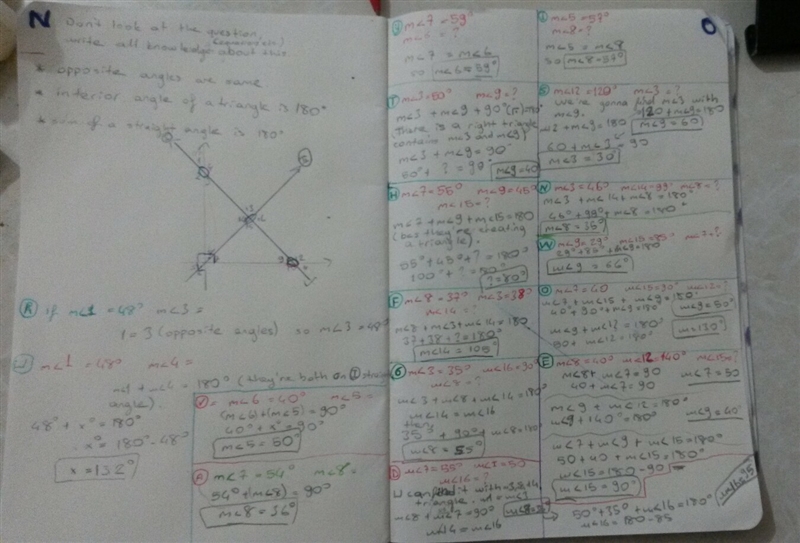 N
Don't look at the question,
write all knowledge about this
* opposite angles are same
* interior angle of a triangle is 180°
* sum of a straight angle is 180°
R if m∠1 = 48° m∠3 =
1 = 3 (opposite angles) so m∠3 = 48°
m∠1 = 48° m∠4 =
m∠1 + m∠4 = 180° (they're both on straight
angle).
48° + x° = 180°
x° = 180° - 48°
x = 132°
m∠6 = 40° m∠5 =
(m∠6) + (m∠5) = 90°
40° + x° = 90°
m∠5 = 50°
A m∠7 = 54° m∠8 =
54° + (m∠8) = 90°
m∠8 = 36°
m∠7 = 59°
m∠6 = ?
m∠7 = m∠6
so m∠6 = 59°
T m∠3=50° m∠9=?
m∠3 + m∠9 + 90° =180°
(There is a right triangle
contains m∠3 and m∠9)
m∠3 + m∠9 = 90°
50° + ? = 90° m∠9=40°
H m∠7=55° m∠9=45°
m∠15=?
m∠7+m∠9+m∠15=180
(bec they're creating
a triangle).
55°+45°+?=180°
100°+?=180°
?=80°
F m∠8=37° m∠3=38°
m∠14=?
m∠8+m∠3+m∠14=180
37+38+?=180°
m∠14=105°
G m∠3=35° m∠14=90°
m∠8=?
m∠3+m∠8+m∠14=180°
m∠14=m∠16
then
35°+90°+m∠8=180
m∠8=55°
m∠7=55° m∠8=50
m∠16=?
with
triangle
m∠8+m∠7=90°
m∠14=m∠16
O
m∠5=57°
m∠8=?
m∠5=m∠8
so m∠8=57°
S m∠12=120° m∠3=?
We're gonna find m∠3 with
m∠9. 120+m∠9=180
m∠12+m∠9=180 m∠9=60
60+m∠3=90
m∠3=30°
N m∠3=46° m∠14=99° m∠8=?
m∠3+m∠14+m∠8=180°
46°+99°+m∠8=180°
m∠8=35°
W m∠9=29° m∠15=85° m∠7=?
29°+85°+m∠9=180
m∠9=66°
O m∠7=40 m∠15=90° m∠12=?
m∠7+m∠15+m∠9=180°
40°+90°+m∠9=180° m∠9=50°
m∠9+m∠12=180°
50+m∠12=180° m=130°
E m∠8=40° m∠12=140° m∠15=?
m∠8+m∠7=90 m∠7=50
40+m∠7=90
m∠9+m∠12=180°
m∠9+140°=180° m∠9=40°
m∠7+m∠9+m∠15=180°
50+40+m∠15=180°
m∠15=180-90
m∠15=90°
50°+35°+m∠16=180°
m∠16=180-85
m∠16=95